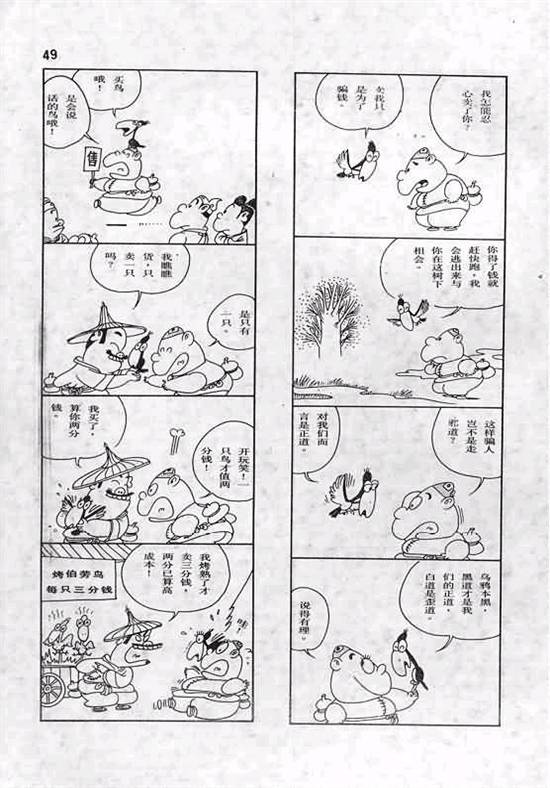 49
我怎能忍
心卖了你?
卖我只
是为了
骗钱。
你得了钱就
赶快跑,我
会逃出来与
你在这树下
相会。
这样骗人
岂不是走
邪道?
对我们而
言是正道。
乌鸦本黑,
黑道才是我
们的正道,
白道是歪道。
说得有理。
买鸟
哦!
是会说
话的鸟哦!
售
我瞧瞧
货,只
卖一只
吗?
是只有
一只。
我买了,
算你两分
钱。
开玩笑!一
只鸟才值两
分钱!
烤伯劳鸟
每只三分钱
我烤熟了才
卖三分钱,
两分已算高
成本!
哇